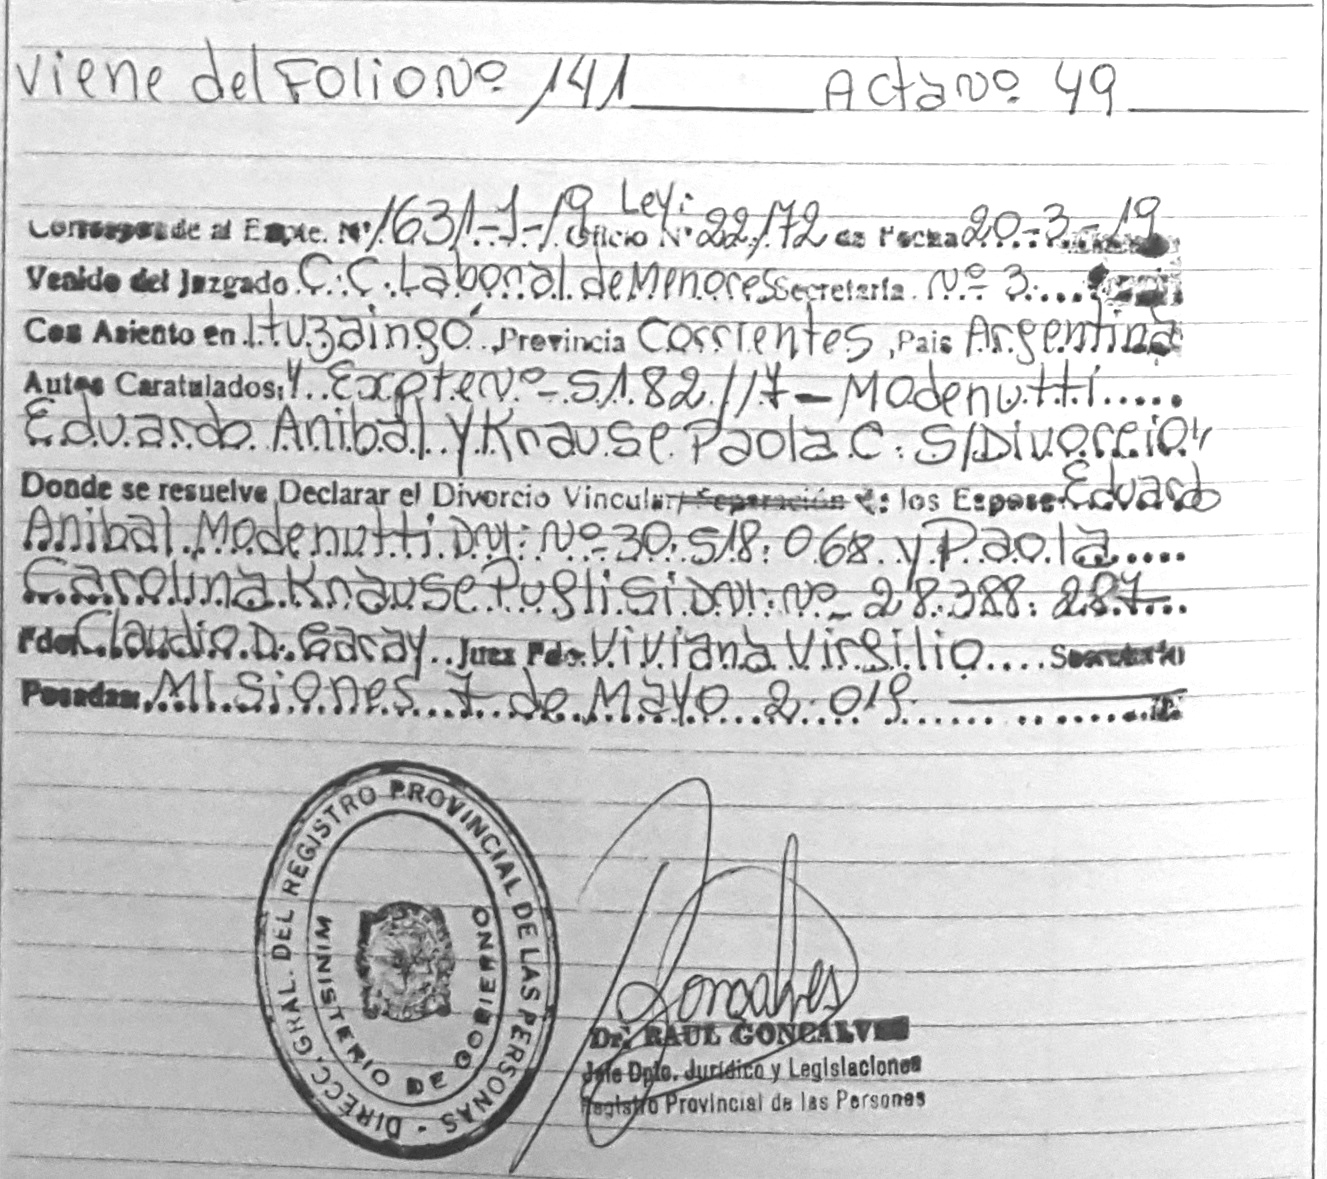 viene del Folio Nº 141 Acta Nº 49
Ley:
Corresponde al Expte. Nº 1631-1-19 Oficio Nº 22/72 de Fecha 20-3-19
Venido del Juzgado C.C. Laboral de Menores Secretaría Nº 3
Con Asiento en Ituzaingó, Provincia Corrientes, Pais Argentina
Autos Caratulados: "Expte Nº 5182/17 - Modenutti
Eduardo Anibal y Krause Paola C. S/Divorcio"
Donde se resuelve Declarar el Divorcio Vincular/ Separación de los Esposos Eduardo
Anibal Modenutti DNI: Nº 30.518.068 y Paola
Carolina Krause Puglisi DNI: Nº 28.388.287
Fdo Claudio D. Garay. Juez Fdo. Viviana Virgilio Secretario
Posadas, Misiones 7 de Mayo 2.019
DIRECC. GRAL. DEL REGISTRO PROVINCIAL DE LAS PERSONAS -
MINISTERIO DE GOBIERNO
Goncalves
Dr. RAUL GONCALVES
Jefe Dpto. Jurídico y Legislaciones
Registro Provincial de las Personas